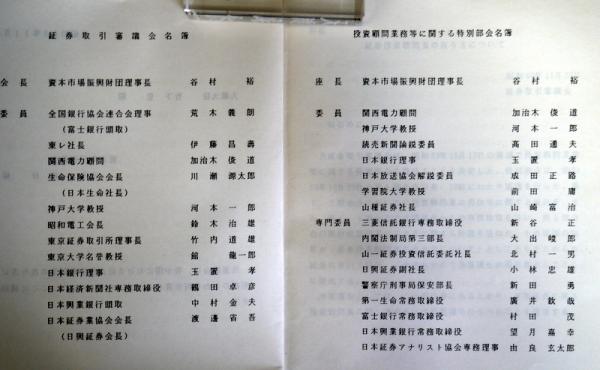 証券取引審議会名簿
会長 資本市場振興財団理事長 谷村 裕
委員 全国銀行協会連合会理事 荒木義朗
(富士銀行頭取)
東レ社長 伊藤昌壽
関西電力顧問 加治木俊道
生命保険協会会長 川瀬源太郎
(日本生命社長)
神戸大学教授 河本一郎
昭和電工会長 鈴木治雄
東京証券取引所理事長 竹内道雄
東京大学名誉教授 館龍一郎
日本銀行理事 玉置 孝
日本経済新聞社専務取締役 鶴田卓彦
日本興業銀行頭取 中村金夫
日本証券業協会会長 渡邊省吾
(日興証券会長)
投資顧問業務等に関する特別部会名簿
座長 資本市場振興財団理事長 谷村 裕
委員 関西電力顧問 加治木俊道
神戸大学教授 河本一郎
読売新聞論説委員 高田通夫
日本銀行理事 玉置 孝
日本放送協会解説委員 成田正路
学習院大学教授 前田 庸
山種証券社長 山崎富治
専門委員 三菱信託銀行専務取締役 新谷 正
内閣法制局第三部長 大出峻郎
山一証券投資信託委託社長 北村一男
日興証券副社長 小林忠雄
警察庁刑事局保安部長 新田 勇
第一生命常務取締役 廣井欽哉
富士銀行常務取締役 村田 茂
日本興業銀行常務取締役 望月嘉幸
日本証券アナリスト協会専務理事 由良玄太郎